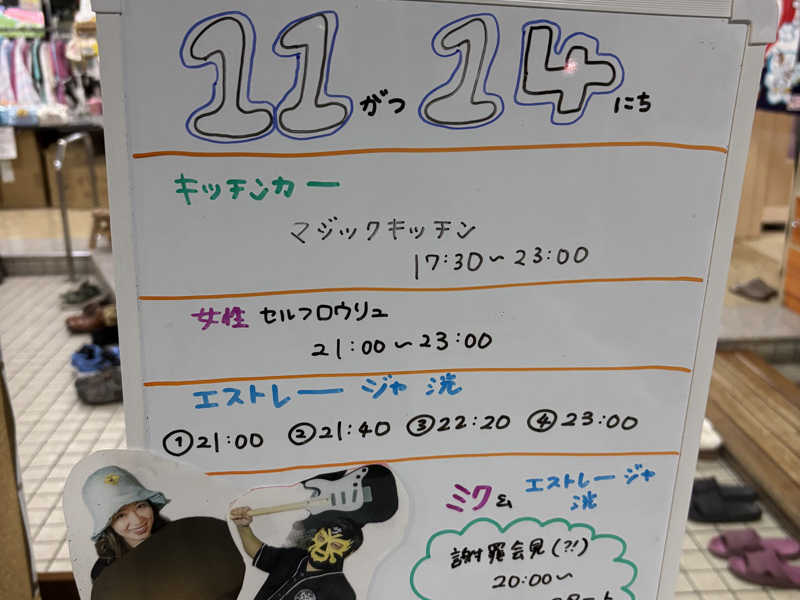 11がつ14にち
キッチンカー
マジックキッチン
17:30〜23:00
女性 セルフロウリュ
21:00〜23:00
エストレージャ 洸
①21:00 ②21:40 ③22:20 ④23:00
ミク& エストレージャ
洸
謝罪会見(?!)
20:00〜